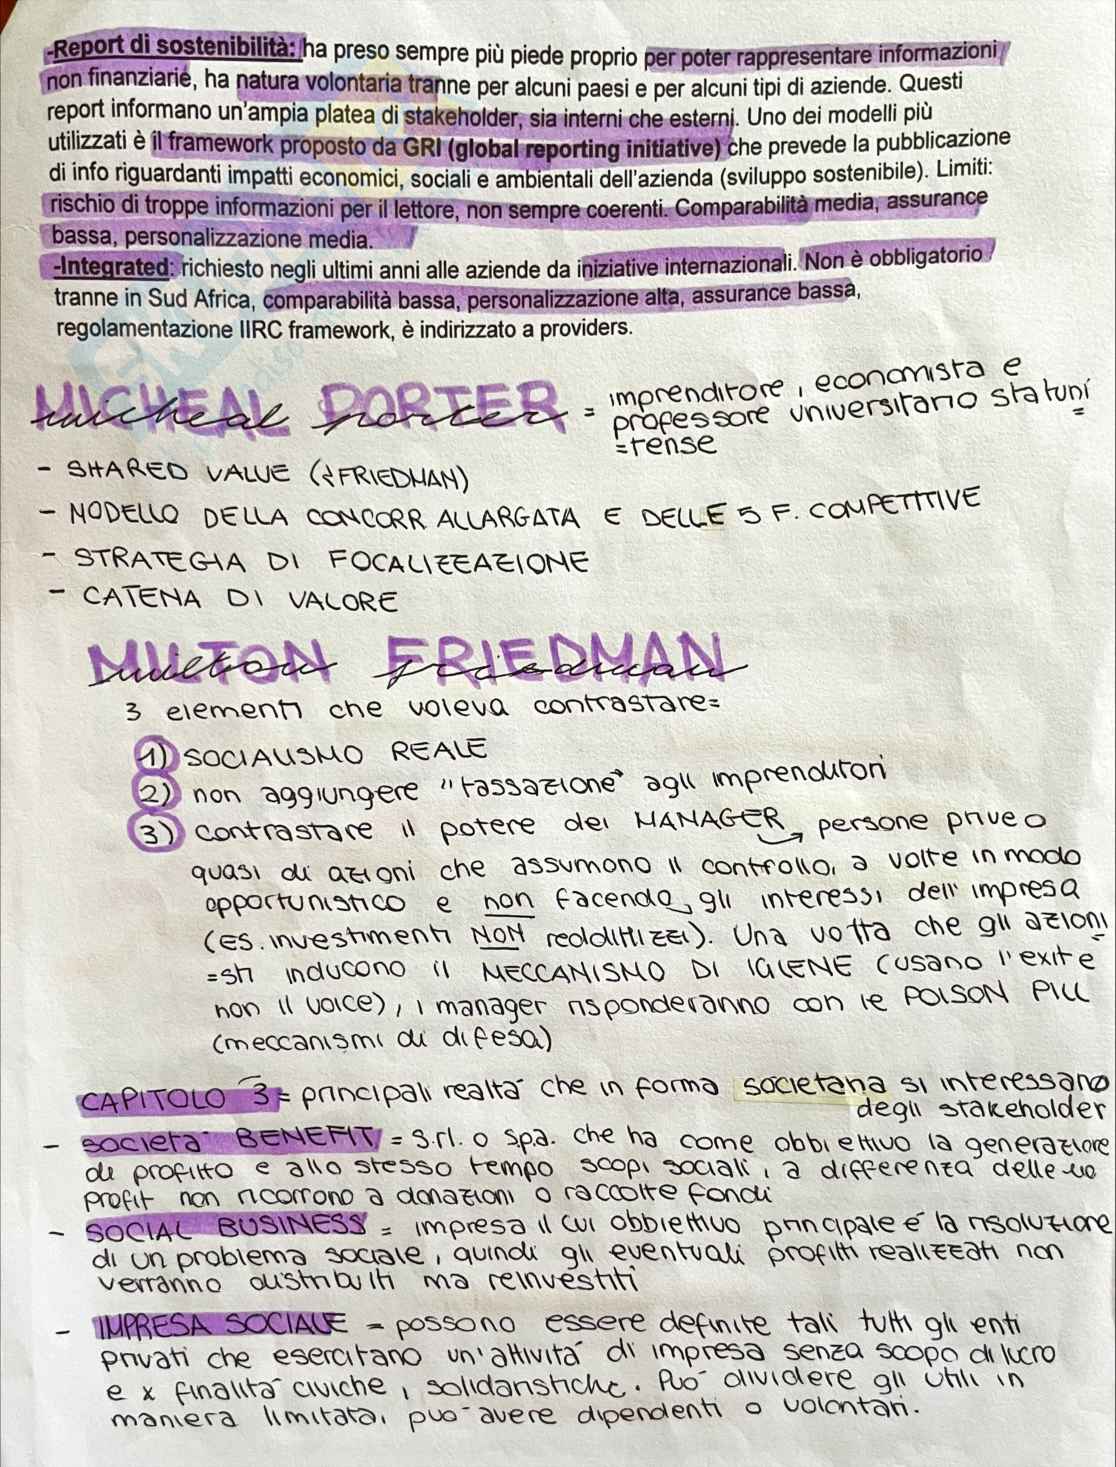 -Report di sostenibilità: ha preso sempre più piede proprio per poter rappresentare informazioni
non finanziarie, ha natura volontaria tranne per alcuni paesi e per alcuni tipi di aziende. Questi
report informano un'ampia platea di stakeholder, sia interni che esterni. Uno dei modelli più
utilizzati è il framework proposto da GRI (global reporting initiative) che prevede la pubblicazione
di info riguardanti impatti economici, sociali e ambientali dell'azienda (sviluppo sostenibile). Limiti:
rischio di troppe informazioni per il lettore, non sempre coerenti. Comparabilità media, assurance
bassa, personalizzazione media.
-Integrated: richiesto negli ultimi anni alle aziende da iniziative internazionali. Non è obbligatorio
tranne in Sud Africa, comparabilità bassa, personalizzazione alta, assurance bassa,
regolamentazione IIRC framework, è indirizzato a providers.
MICHEAL PORTER = imprenditore, economista e
professore universitario statuni
=tense
- SHARED VALUE (≠FRIEDMAN)
- MODELLO DELLA CONCORR ALLARGATA E DELLE 5 F. COMPETITIVE
- STRATEGIA DI FOCALIZZAZIONE
- CATENA DI VALORE
MILTON FRIEDMAN
3 elementi che voleva contrastare=
1) SOCIALISMO REALE
2) non aggiungere "tassazione" agli imprenditori
3) contrastare il potere dei MANAGER → persone prive o
quasi di azioni che assumono il controllo, a volte in modo
opportunistico e non facendo gli interessi dell'impresa
(ES. investimenti NON redditizzi). Una volta che gli azioni
=sti inducono il MECCANISMO DI IGIENE (usano l'exit e
non il voice), i manager risponderanno con le POISON PILL
(meccanismi di difesa)
CAPITOLO 3 = principali realtà che in forma societaria si interessano
degli stakeholder
- società BENEFIT = s.rl. o s.p.a. che ha come obbiettivo la generazione
di profitto e allo stesso tempo scopi sociali, a differenza delle no
profit non ricorrono a donazioni o raccolte fondi
- SOCIAL BUSINESS = impresa il cui obbiettivo principale è la risoluzione
di un problema sociale, quindi gli eventuali profitti realizzati non
verranno distribuiti ma reinvestiti
- IMPRESA SOCIALE = possono essere definite tali tutti gli enti
privati che esercitano un'attività di impresa senza scopo di lucro
e x finalità civiche, solidaristiche. Può dividere gli utili in
maniera limitata, può avere dipendenti o volontari.